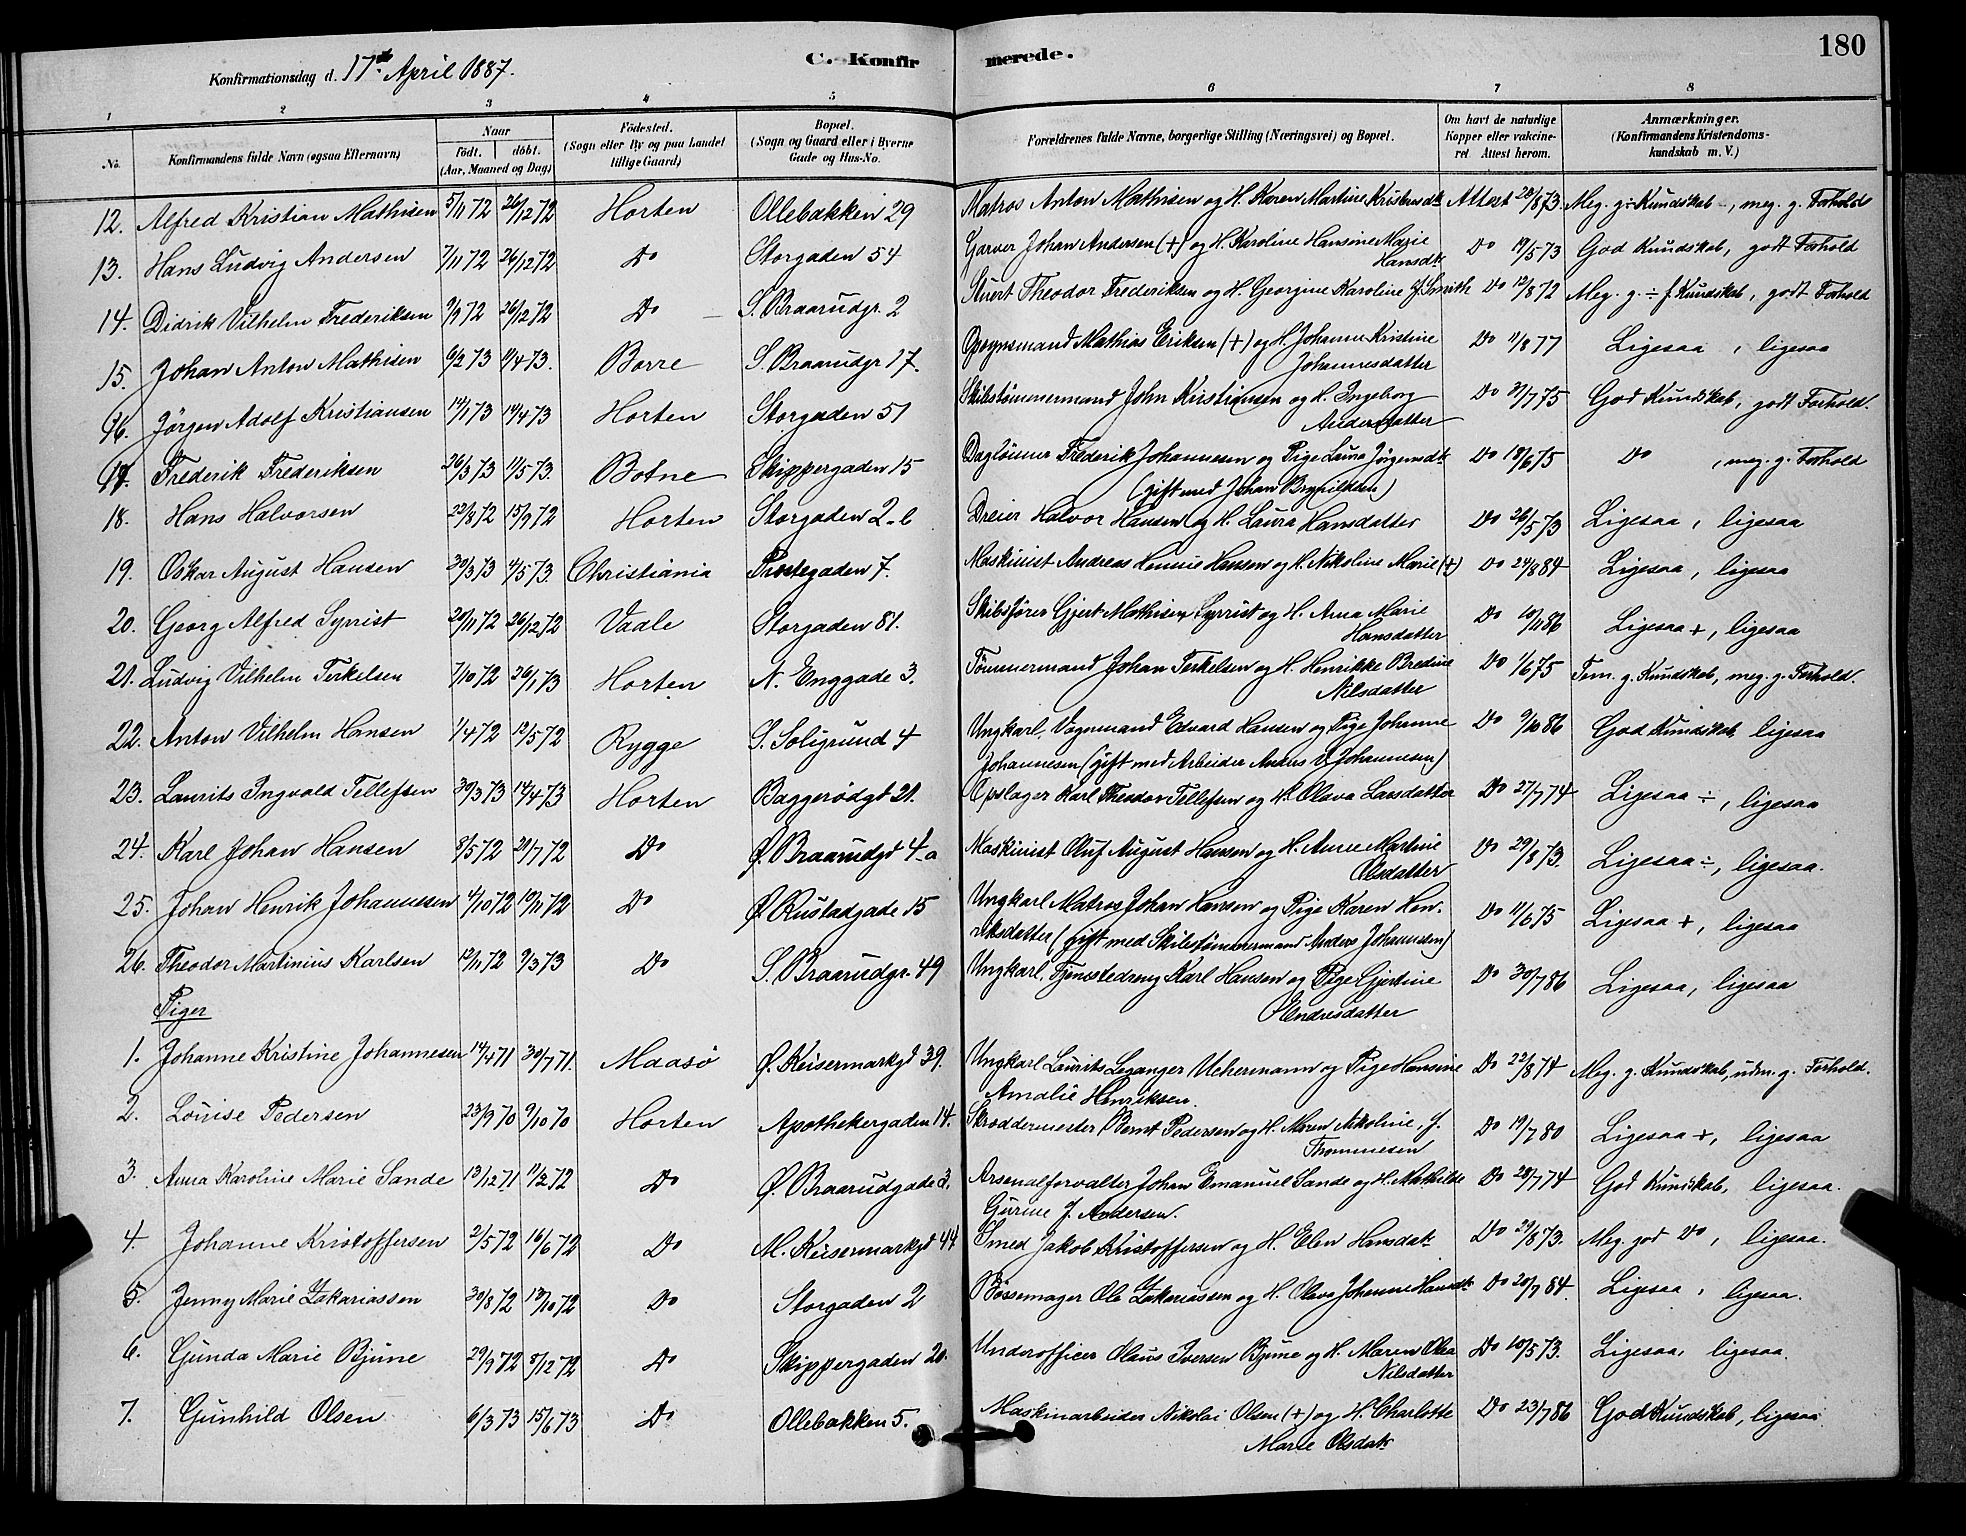 180
Konfirmationsdag d. 17de April 1887.
C. Konfirmerede.
1 2 3 4 5 6 7 8
No. Konfirmandens fulde Navn (ogsaa Efternavn) Naar født. døbt. (Aar, Maaned og Dag) Fødested. (Sogn eller By og paa Landet tillige Gaard) Bopæl. (Sogn og Gaard eller i Byerne Gade og Hus-No. Forældrenes fulde Navne, borgerlige Stilling (Næringsvei) og Bopæl. Om havt de naturlige Kopper eller vakcineret. Attest herom. Anmærkninger. (Konfirmandens Kristendomskundskab m. V.)
12. Alfred Kristian Mathisen 5/11 72 26/12 72 Horten Ollebakken 29 Matros Anton Mathisen og H. Karen Martine Kristensdt. Attest 28/8 73. Meg. g ÷ Kundskab, meg. g. Forhold
13. Hans Ludvig Andersen 7/11 72 26/12 72 Do Storgaden 54 Garver Johan Andersen (+) og H. Karoline Hansine Marie
Hansdt. Do 19/5 73 God Kundskab, godt Forhold
14. Didrik Vilhelm Frederiksen 9/9 72 26/12 72 Do S. Braarudgr. 2 Stuert Theodor Frederiksen og H. Georgine Karoline J. Smith Do 12/8 72 Meg. g. ÷ f. Kundskab, godt Forhold
15. Johan Anton Mathisen 6/2 73 11/4 73. Borre S. Braarudgr 17. Opsynsmand Mathias Eriksen (+) og H. Johanne Kristine
Johannesdatter Do 11/8 77 Ligesaa, ligesaa
16. Jörgen Adolf Kristiansen 14/1 73 14/4 73 Horten Storgaden 51 Skibstømmermand John Kristiansen og H. Ingeborg
Andersdatter Do 31/7 75 God Kundskab, godt Forhold.
17. Frederik Frederiksen 26/3 73 11/5 73. Botne Skippergaden 15 Daglönner Frederik Johannesen og Pige Laura Jörgensdt.
(gift med Johan Brynildsen) Do 18/6 75 Do, meg. g. Forhold
18. Hans Halvorsen 22/8 72 15/9 72 Horten Storgaden 2-b Dreier Halvor Hansen og H. Laura Hansdatter Do 26/5 73 Ligesaa, ligesaa
19. Oskar August Hansen 30/3 73 4/5 73. Christiania Prestegaden 7. Maskinist Andreas Hennie Hansen og H. Nikoline Marie (+) Do 24/8 84 Ligesaa, ligesaa
20. Georg Alfred Syrrist 20/11 72 26/12 72 Vaale Storgaden 81. Skibsfører Gjert Mathisen Syrrist og H. Anna Marie
Hansdatter Do 10/11 86 Ligesaa +, ligesaa
21. Ludvig Vilhelm Terkelsen 7/10 72 26/1 73 Horten N. Enggade 3. Tømmermand Johan Terkelsen og H. Henrikke Bredine
Nilsdatter Do 1/6 75 Tem. g. Kundskab, meg. g. Forhold.
22. Anton Vilhelm Hansen 1/4 72 12/5 72 Rygge S. Soligrund 4 Ungkarl, Vognmand Edvard Hansen og Pige Johanne
Johannesen (gift med Arbeider Anders Johannesen) Do 9/10 86 God Kundskab, ligesaa
23. Laurits Ingvald Tellefsen 30/3 73 14/4 73 Horten Baggerødgt 21. Opslager Karl Theodor Tellefsen og H. Olava Larsdatter Do 27/7 74 Ligesaa ÷, ligesaa
24. Karl Johan Hansen 8/5 72 20/7 72 Do Ø. Braarudgd 4-a Maskinist Oluf August Hansen og H. Anne Martine
Olsdatter Do 29/8 73. Ligesaa ÷, ligesaa.
25. Johan Henrik Johannesen 4/10 72 10/11 72 Do Ø. Rustadgade 15 Ungkarl Matros Johan Hansen og Pige Karen Hen-
riksdatter (gift med Skibstømmermand Anders Johannesen) Do 11/6 75 Ligesaa +, ligesaa
26. Theodor Martinius Karlsen 12/11 72 9/3 73 Do S. Braarudgr. 49 Ungkarl, Tjenestedreng Karl Hansen og Pige Gjertine
Endresdatter Do 30/7 86 Ligesaa, ligesaa
Piger
1. Johanne Kristine Johannesen 14/4 71 30/7 71. Maasö Ø. Keisermarkgd 39. Ungkarl Laurits Leganger Uchermann og Pige Hansine
Amalie Henriksen. Do 22/8 74 Meg. g. Kundskab, udm. g. Forhold.
2. Louise Pedersen 23/9 70 9/10 70 Horten Apothekergaden 14. Skreddermester Bernt Pedersen og H. Maren Nikoline, f.
Thommesen Do 19/7 80 Ligesaa +, ligesaa
3. Anna Karoline Marie Sande 13/12 71 11/2 72 Do Ø. Braarudgade 3. Arsenalforvalter Johan Emanuel Sande og H. Mathilde
Gurine f. Andersen. Do 28/7 74 God Kundskab, ligesaa.
4. Johanne Kristoffersen 2/5 72 16/6 72 Do M. Keisermarkgd 44 Smed Jakob Kristoffersen og H. Elen Hansdatr Do 29/8 73. Meg. god Do, ligesaa.
5. Jenny Marie Zakariassen 30/8 72 13/10 72 Do Storgaden 2 Børsemager Ole Zakariassen og H. Olava Johanne Hansdt. Do 20/7 84. Ligesaa, ligesaa.
6. Gunda Marie Bjune 29/9 72 8/12 72 Do Skippergaden 20. Underofficer Olaus Iversen Bjune og H. Maren Olea
Nilsdatter Do 10/5 73. Ligesaa, ligesaa.
7. Gunhild Olsen 6/3 73 15/6 73 Do Ollebakken 5. Maskinarbeider Nikolai Olsen (+) og H. Charlotte
Marie Olsdatr Do 23/7 86 God Kundskab, ligesaa